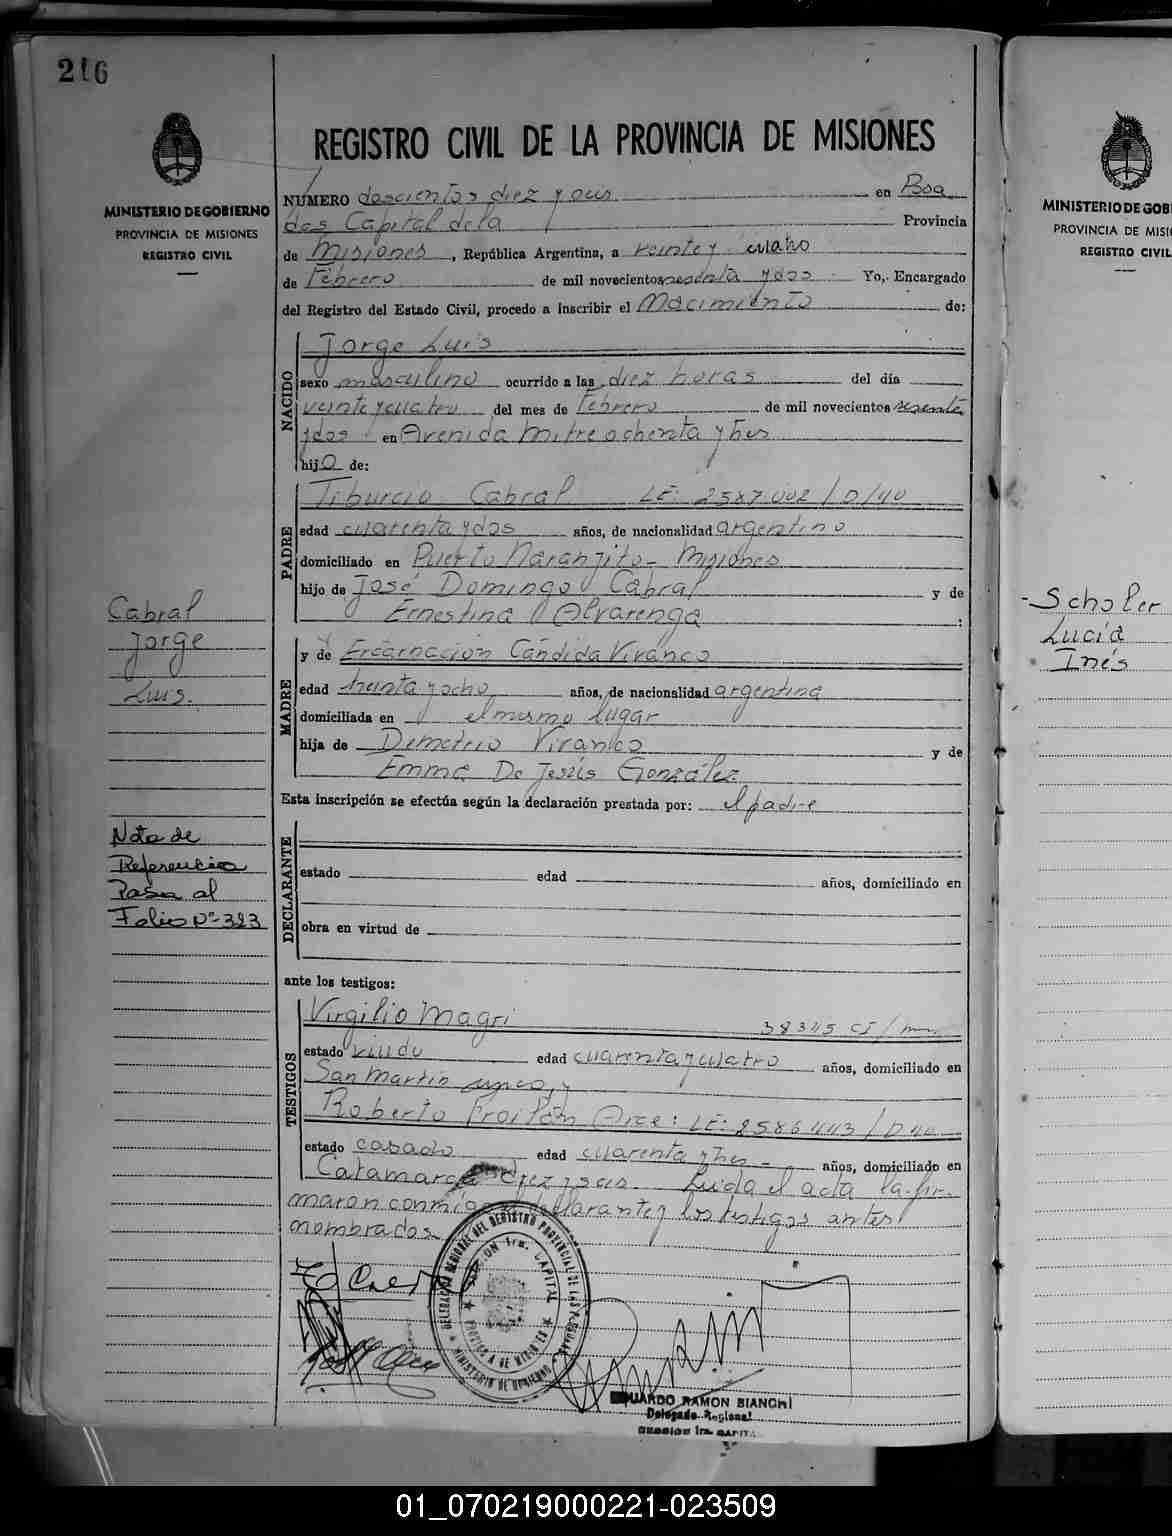 216
MINISTERIO DE GOBIERNO
PROVINCIA DE MISIONES
REGISTRO CIVIL
Cabral
Jorge
Luis.
Nota de
Referencia
Pasa al
Folio Nº 323
REGISTRO CIVIL DE LA PROVINCIA DE MISIONES
NUMERO doscientos diez y seis en Posa
das Capital de la Provincia
de Misiones, República Argentina, a veinte y cuatro
de Febrero de mil novecientos sesenta y dos Yo, Encargado
del Registro del Estado Civil, procedo a inscribir el Nacimiento de:
NACIDO
Jorge Luis
sexo masculino ocurrido a las diez horas del día
veinte y cuatro del mes de Febrero de mil novecientos sesenta
y dos en Avenida Mitre ochenta y tres
hijo de:
PADRE
Tiburcio Cabral LE: 2587.002/D/40
edad cuarenta y dos años, de nacionalidad argentino
domiciliado en Puerto Naranjito - Misiones
hijo de José Domingo Cabral y de
Ernestina Alvarenga :
MADRE
y de Encarnación Cándida Vivanco
edad treinta y ocho años, de nacionalidad argentina
domiciliada en el mismo lugar
hija de Demetrio Vivanco y de
Emma De Jesús González
Esta inscripción se efectúa según la declaración prestada por: el padre
DECLARANTE
estado edad años, domiciliado en
obra en virtud de
ante los testigos:
TESTIGOS
Virgilio Magri 38315 CI/
estado viudo edad cuarenta y cuatro años, domiciliado en
San Martin y
Roberto Froilán Arce: LE: 2586443/D 40
estado casado edad cuarenta y tres - años, domiciliado en
Catamarca diez y seis. Leída el acta la fir-
maron conmigo el declarante y los testigos antes
nombrados
DELEGACION REGIONAL DEL REGISTRO PROVINCIAL DE LAS PERSONAS
SECCION 1ra. CAPITAL
PROVINCIA DE MISIONES
MINISTERIO DE GOBIERNO
EDUARDO RAMON BIANCHI
Delegado Regional
SECCION 1ra. CAPITAL
MINISTERIO DE GOBI
PROVINCIA DE MISI
REGISTRO CIVIL
- Scholer
Lucia
Inés
01_070219000221-023509